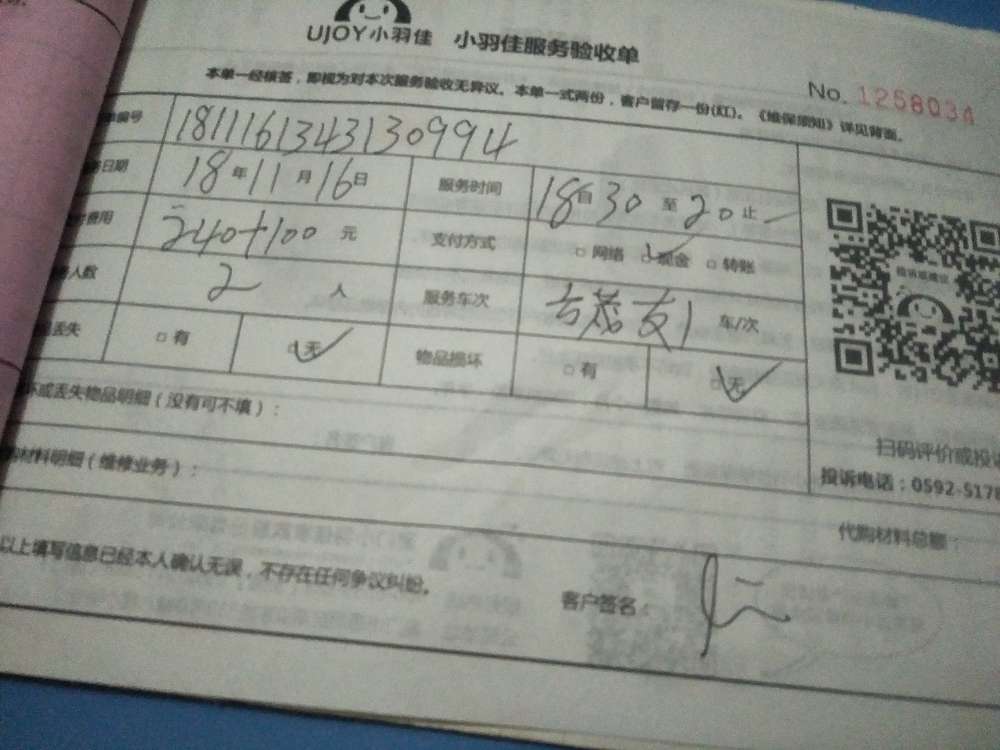 UJOY小羽佳 小羽佳服务验收单
No. 1258034
本单一经核签，即视为对本次服务验收无异议。本单一式两份，客户留存一份(红)。《维保须知》详见背面。
编号 18111613431309994
日期 18年11月16日 服务时间 18自30至20止
费用 240+100元 支付方式 □网络 ☑现金 □转账
人数 2人 服务车次 1车/次
丢失 □有 ☑无 物品损坏 □有 ☑无
坏或丢失物品明细（没有可不填）：
扫码评价或投
材料明细（维修业务）：
投诉电话：0592-5178
代购材料总额：
以上填写信息已经本人确认无误，不存在任何争议纠纷。
客户签名：